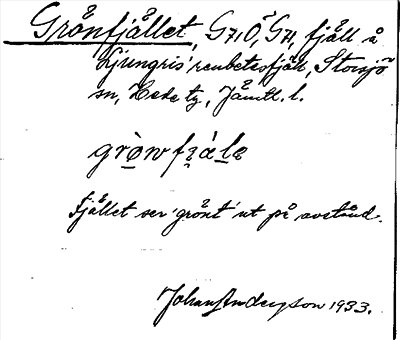 Grönfjället, G71, Ö, G74, fjäll å
Ljungris' renbetesfjäll, Storsjö
sn, Hede tg, Jämtl. l.
grò̱wfi̯á̱lə
Fjället ser 'grönt' ut på avstånd.
Johan Anderzson 1933.